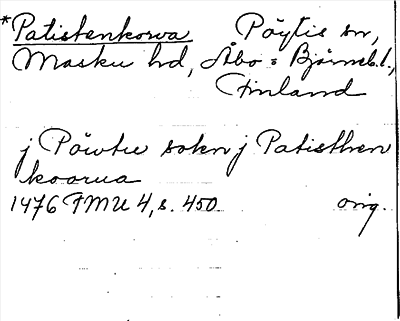 *Patistenkorva Pöytis sn,
Masku hd, Åbo o Björneb. l.,
Finland
j Pöwtu sokn j Patisthen
koorua
1476 FMU 4, s. 450. orig.